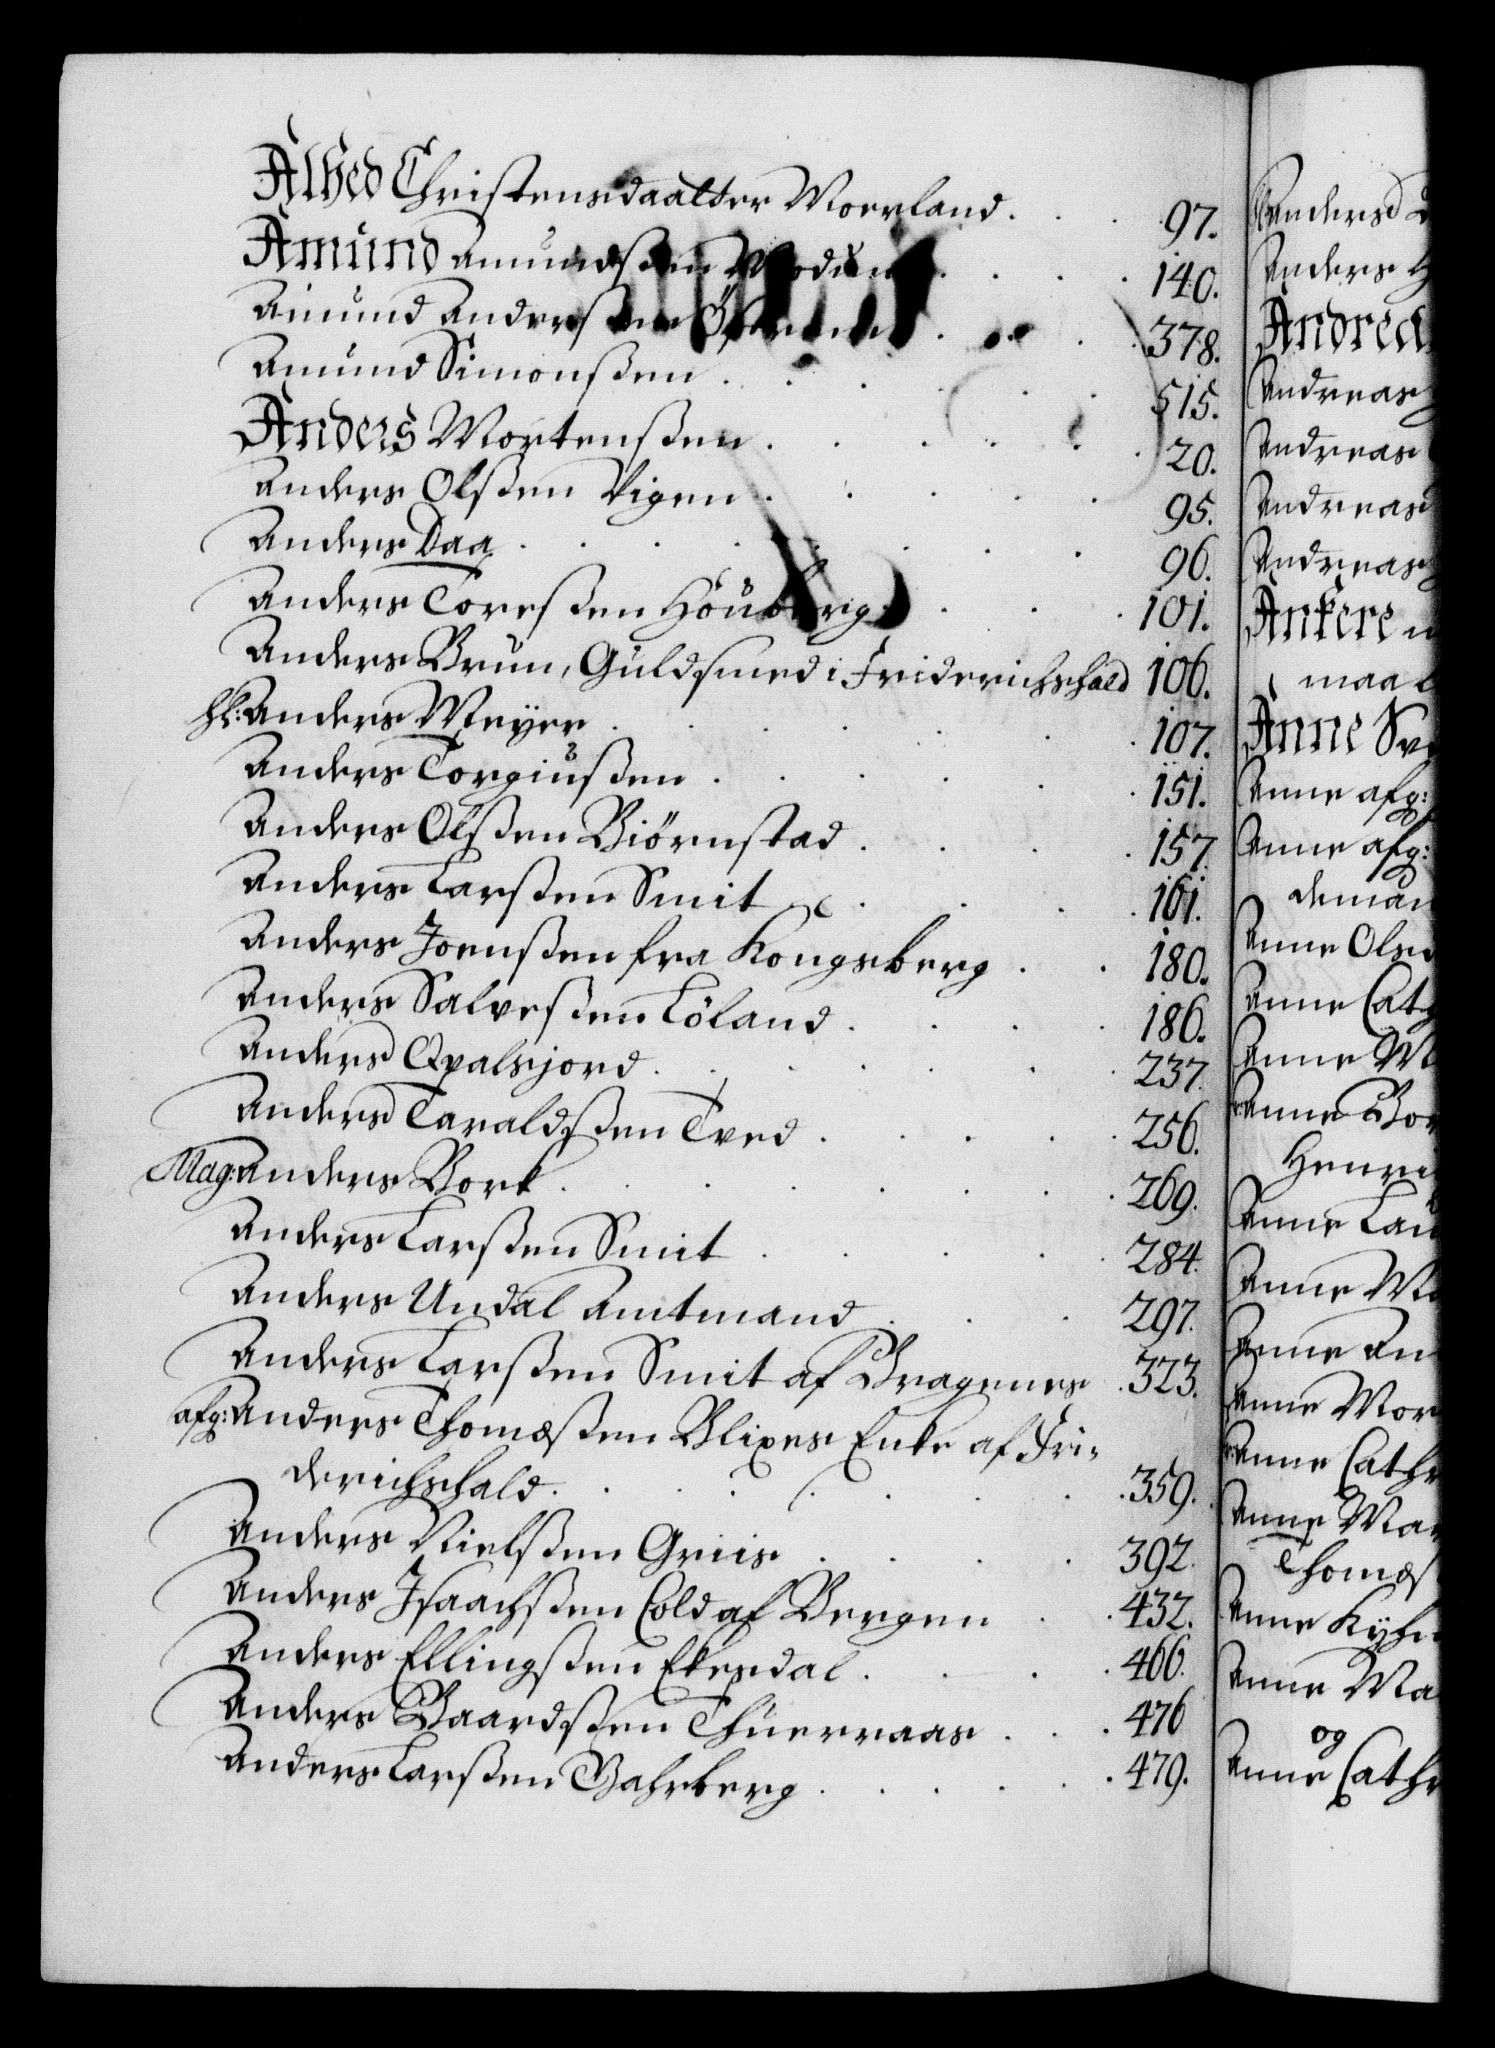 Alhed Christensdaatter Moerland . . . 97.
Amund Amundsßen Modum . . . . 140.
Amund Andersßen . . . . 378.
Amund Simonsßen . . . . . . 515.
Anders Mortensßen . . . . . . 20.
Anders Olsßen Vigen . . . . . 95.
Anders Daa . . . . . . . 96.
Anders Toresßen Höuberg . . . 101.
Anders Brun, Guldsmed i Friderichshald 106.
Hr: Anders Meyer . . . . . . 107.
Anders Torgiusßen . . . . . . 151.
Anders Olsßen Biörnstad . . . . 157.
Anders Larsßen Smit . . . . . 161.
Anders Joensßen fra Kongsberg . . 180.
Anders Salvesßen Löland . . . . 186.
Anders Qvalsjord . . . . . . 237.
Anders Taraldsßen Tved . . . . . 256.
Mag: Anders Bork . . . . . . . 269.
Anders Larsßen Smit . . . . . 284.
Anders Undal Amtmand . . . 297.
Anders Larsßen Smit af Bragenes . 323.
afg: Anders Thomæsßen Blixes Enke af Fri-
derichshald . . . . . . . 359.
Anders Nielsßen Griis . . . . 392.
Anders Isaachsßen Cold af Bergen . . 432.
Anders Ellingsßen Ekesdal . . . . 466.
Anders Baardsßen Thuerraas . . . 476
Anders Larsßen Vahrberg . . . . . 479.
Anders
Anders H
Andrea
Andreas
Andreas
Andreas
Andreas
Ankere
maal
Anne Sv
Anne afg:
Anne afg:
deman
Anne Olsd
Anne Cath
Anne M
Anne Bor
Henri
Anne Lau
Anne Ma
Anne An
Anne Mor
Anne Cathr
Anne Mar
Thomæs
Anne Kyhn
Anne Ma
og
Anne Cathr